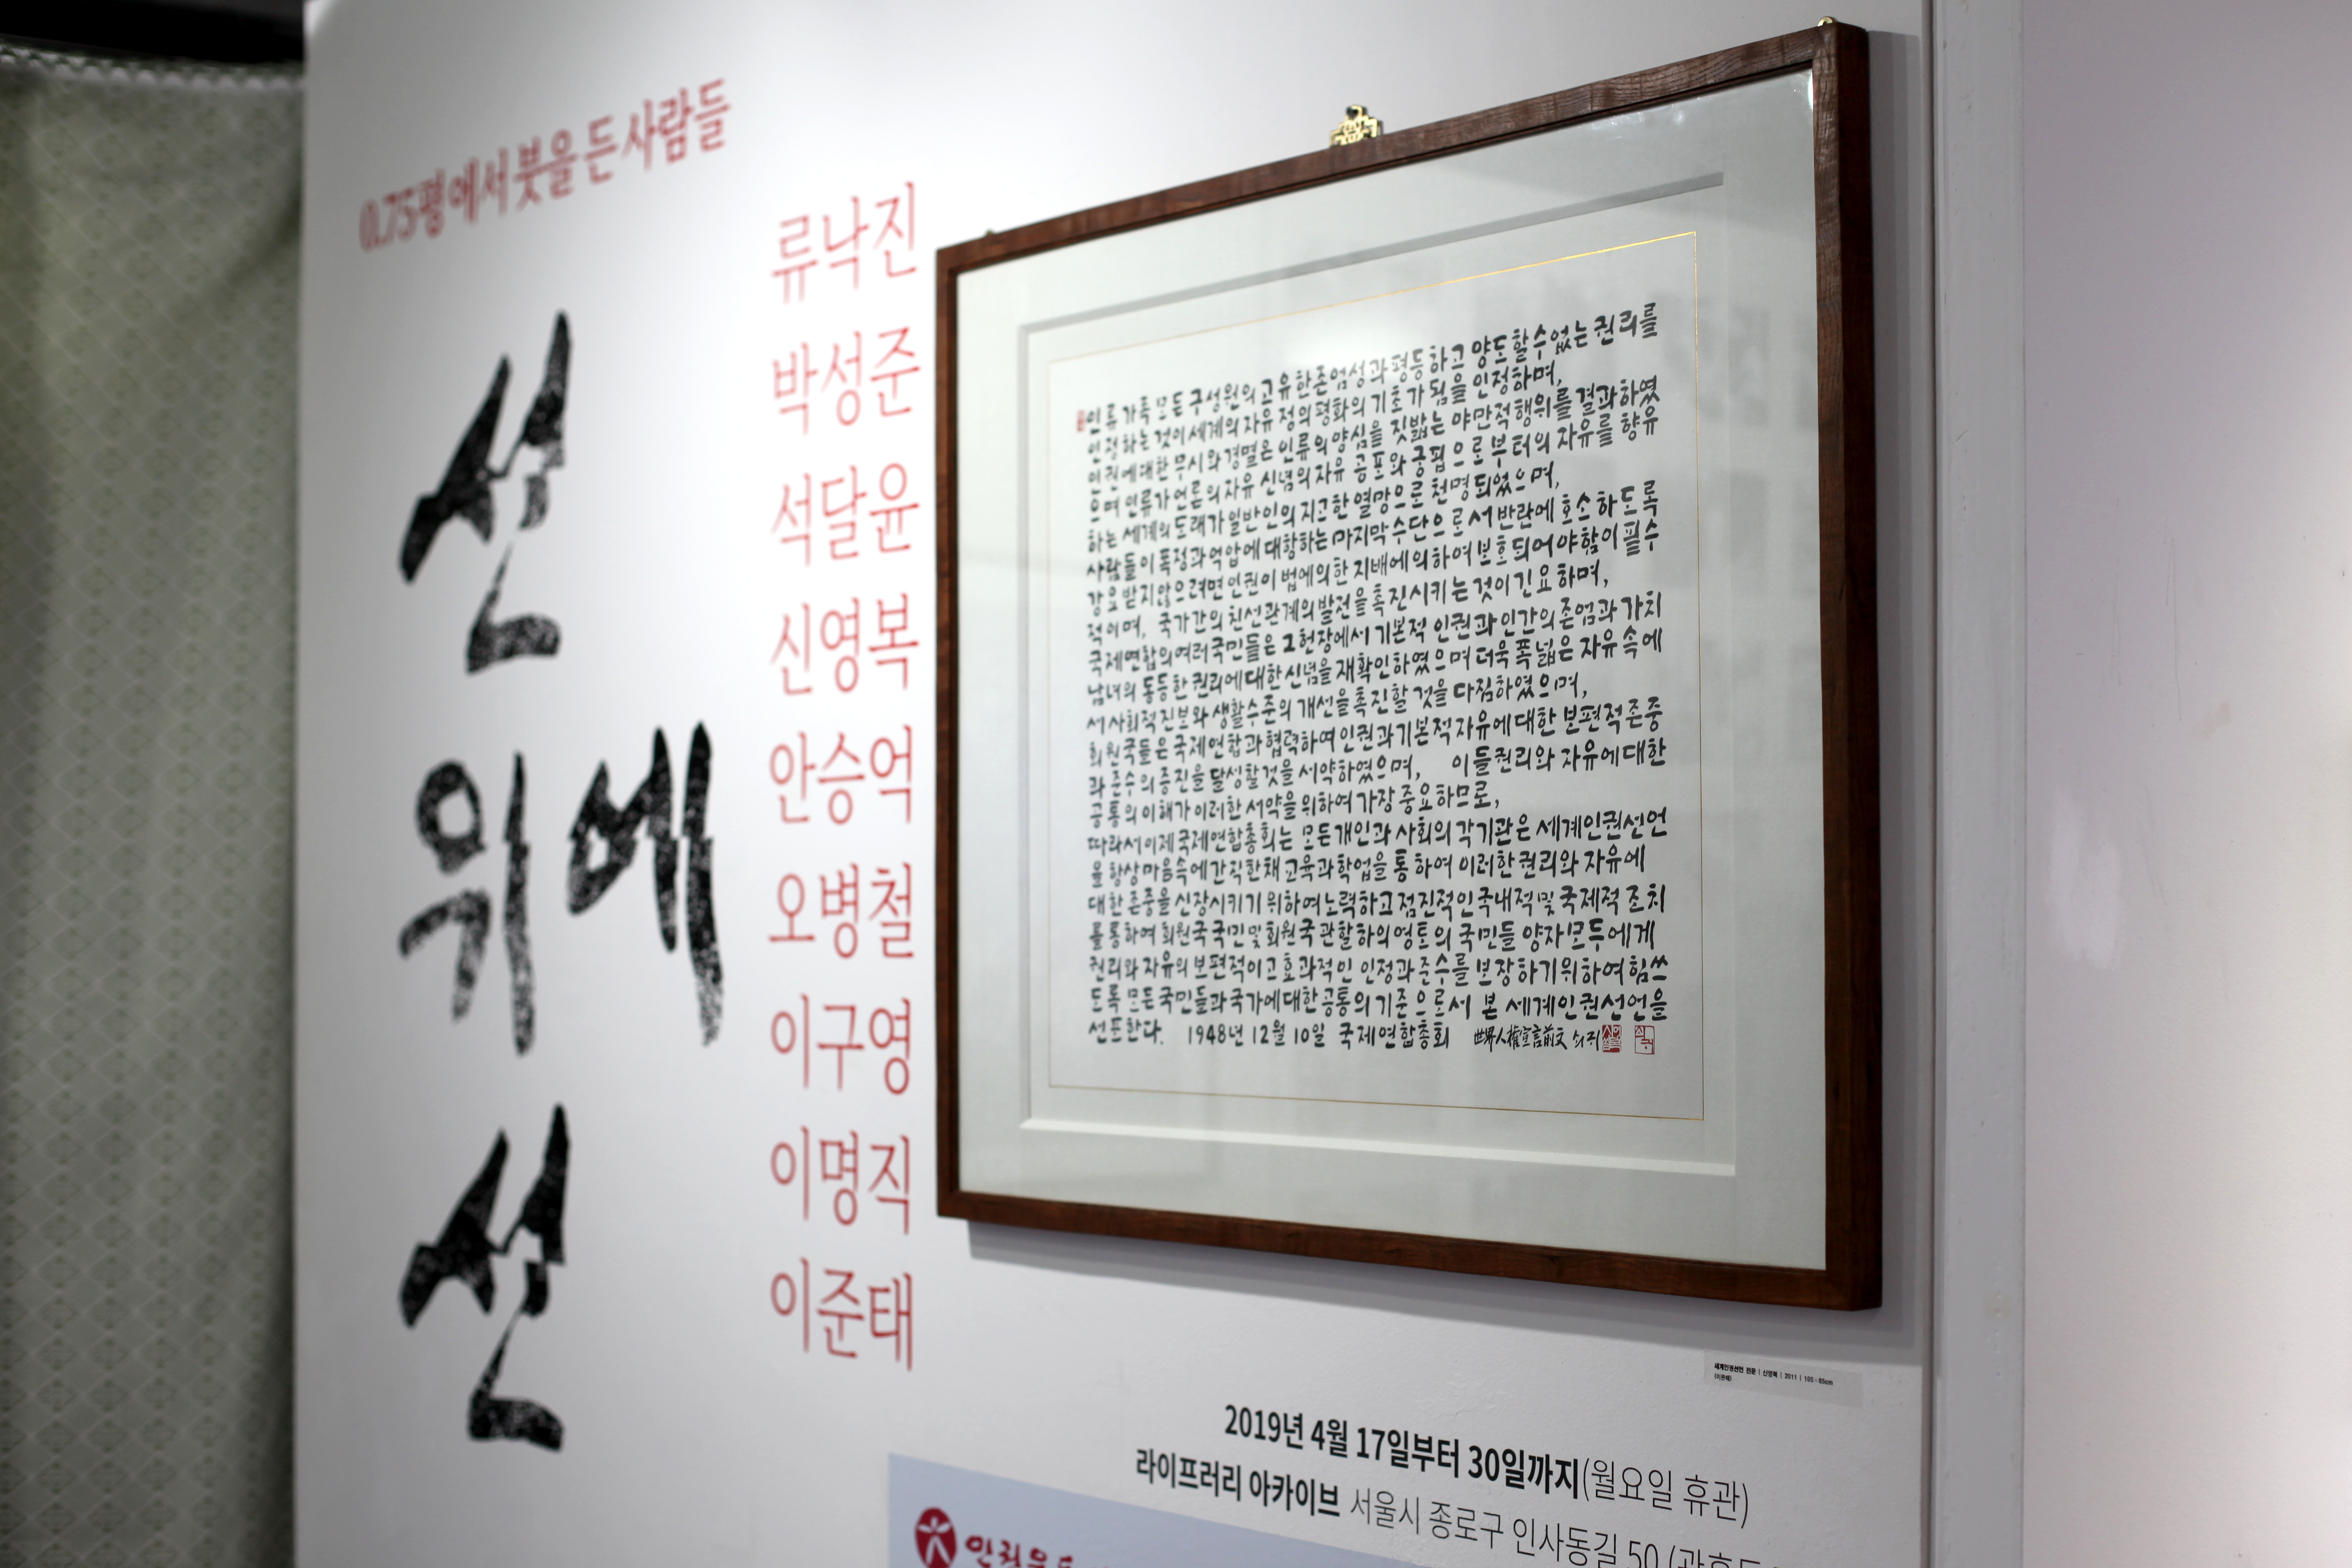 0.75평에서 붓을 든 사람들
선
위에
선
류낙진
박성준
석달윤
신영복
안승억
오병철
이구영
이명직
이준태
인류 가족 모든 구성원의 고유한 존엄성과 평등하고 양도할 수 없는 권리를
인정하는 것이 세계의 자유 정의 평화의 기초가 됨을 인정하며,
인권에 대한 무시와 경멸은 인류의 양심을 짓밟는 야만적 행위를 결과하였
으며 인류가 언론의 자유 신념의 자유 공포와 궁핍으로부터의 자유를 향유
하는 세계의 도래가 일반인의 지고한 열망으로 천명되었으며,
사람들이 폭정과 억압에 대항하는 마지막 수단으로서 반란에 호소하도록
강요받지 않으려면 인권이 법에 의한 지배에 의하여 보호되어야 함이 필수
적이며, 국가간의 친선관계의 발전을 촉진시키는 것이 긴요하며,
국제연합의 여러 국민들은 그 헌장에서 기본적 인권과 인간의 존엄과 가치
남녀의 동등한 권리에 대한 신념을 재확인하였으며 더욱 폭넓은 자유 속에
서 사회적 진보와 생활수준의 개선을 촉진할 것을 다짐하였으며,
회원국들은 국제연합과 협력하여 인권과 기본적 자유에 대한 보편적 존중
과 준수의 증진을 달성할 것을 서약하였으며, 이들 권리와 자유에 대한
공통의 이해가 이러한 서약을 위하여 가장 중요하므로,
따라서 이제 국제연합총회는 모든 개인과 사회의 각 기관은 세계인권선언
을 항상 마음속에 간직한 채 교육과 학업을 통하여 이러한 권리와 자유에
대한 존중을 신장시키기 위하여 노력하고 점진적인 국내적 및 국제적 조치
를 통하여 회원국 국민 및 회원국 관할하의 영토의 국민들 양자 모두에게
권리와 자유의 보편적이고 효과적인 인정과 준수를 보장하기 위하여 힘쓰
도록 모든 국민들과 국가에 대한 공통의 기준으로서 본 세계인권선언을
선포한다. 1948년 12월 10일 국제연합총회 世界人權宣言前文 쇠귀
세계인권선언 전문 | 신영복 | 2011 | 105×85cm
2019년 4월 17일부터 30일까지(월요일 휴관)
라이프러리 아카이브 서울시 종로구 인사동길 50